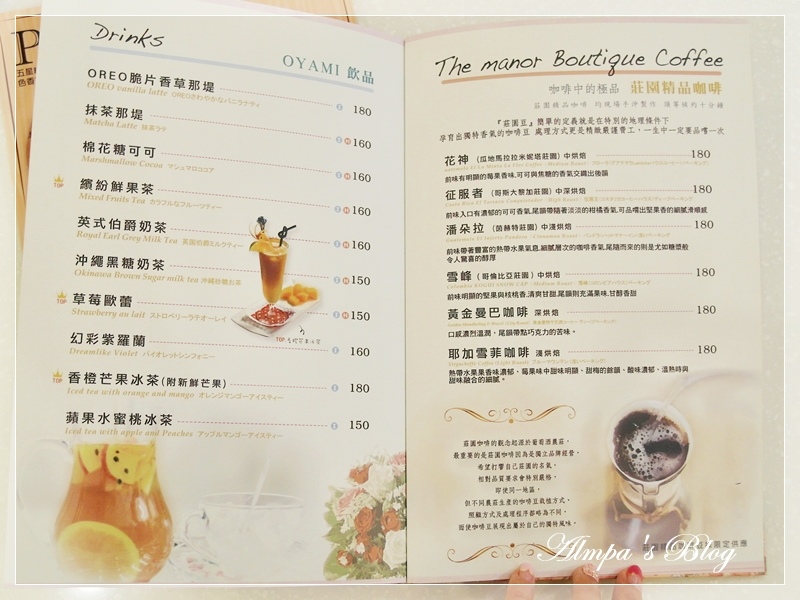 Drinks
OYAMI 飲品
OREO脆片香草那堤 180
OREO vanilla latte OREOさわやかなバニラナティ
抹茶那堤 160
Matcha Latte 抹茶ラテ
棉花糖可可 160
Marshmallow Cocoa マシュマロココア
TOP 繽紛鮮果茶 160
Mixed Fruits Tea カラフルなフルーツティー
英式伯爵奶茶 160
Royal Earl Grey Milk Tea 英国伯爵ミルクティー
沖繩黑糖奶茶 150
Okinawa Brown Sugar milk tea 沖縄砂糖お茶
TOP 草莓歐蕾 150
Strawberry au lait ストロベリーラテオーレイ
TOP 香橙芒果冰茶
幻彩紫羅蘭 160
Dreamlike Violet バイオレットシンフォニー
TOP 香橙芒果冰茶(附新鮮芒果) 180
Iced tea with orange and mango オレンジマンゴーアイスティー
蘋果水蜜桃冰茶 150
Iced tea with apple and Peaches アップルマンゴーアイスティー
The manor Boutique Coffee
咖啡中的極品 莊園精品咖啡
莊園精品咖啡 均現場手沖製作 須等候約十分鐘
『莊園豆』簡單的定義就是在特別的地理條件下
孕育出獨特香氣的咖啡豆 處理方式更是精緻嚴謹費工，一生中一定要品嚐一次
花神 (瓜地馬拉拉米妮塔莊園) 中烘焙 180
前味有明顯的莓果香味,可可與焦糖的香氣交織出後韻
征服者 (哥斯大黎加莊園) 中深烘焙 180
前味入口有濃郁的可可香氣,尾韻帶隨著淡淡的柑橘香氣,可品嚐出堅果香的細膩滑順感
潘朵拉 (茵赫特莊園) 中淺烘焙 180
前味帶著豐富的熱帶水果氣息,細膩層次的咖啡香氣,尾隨而來的則是尤如糖漿般
令人驚喜的醇厚
雪峰 (哥倫比亞莊園) 中烘焙 180
前味明顯的堅果與核桃香,清爽甘甜,尾韻則充滿果味,甘醇香甜
黃金曼巴咖啡 深烘焙 180
口感濃烈溫潤，尾韻帶點巧克力的苦味。
耶加雪菲咖啡 淺烘焙 180
熱帶水果果香味濃郁、莓果味中甜味明顯、甜梅的餘韻、酸味濃郁、溫熱時與
甜味融合的細膩。
莊園咖啡的觀念起源於葡萄酒農莊，
最重要的是莊園咖啡因為是獨立品牌經營，
希望打響自己莊園的名氣，
相對品質要求會特別嚴格，
即使同一地區，
但不同農莊生產的咖啡豆栽植方式，
照顧方式及處理程序都略為不同，
而使咖啡豆展現出屬於自己的獨特風味。
限定供應
Almpa's Blog